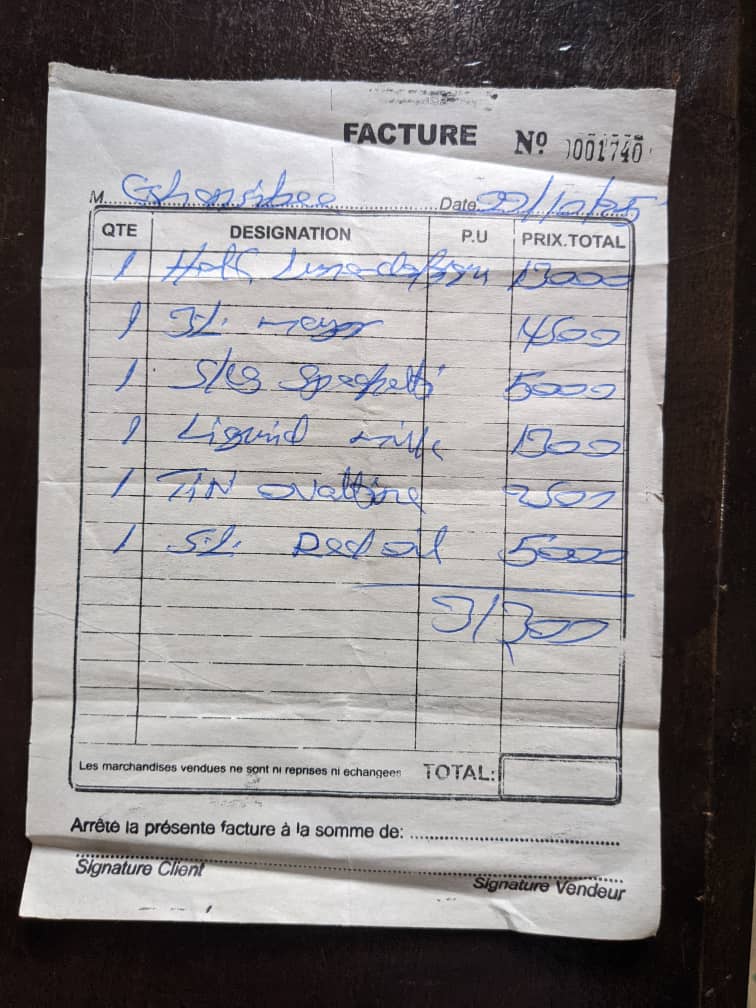 FACTURE Nº 0001740
M. Date 22/10/25
QTE DESIGNATION P.U PRIX.TOTAL
1 Half 13000
1 5L mayo 4500
1 5/kg Spaghetti 5000
1 Liquid milk 1300
1 TIN ovaltine 2500
1 5L Red oil 5000
31300
Les marchandises vendues ne sont ni reprises ni echangees TOTAL:
Arrête la présente facture à la somme de:
Signature Client Signature Vendeur